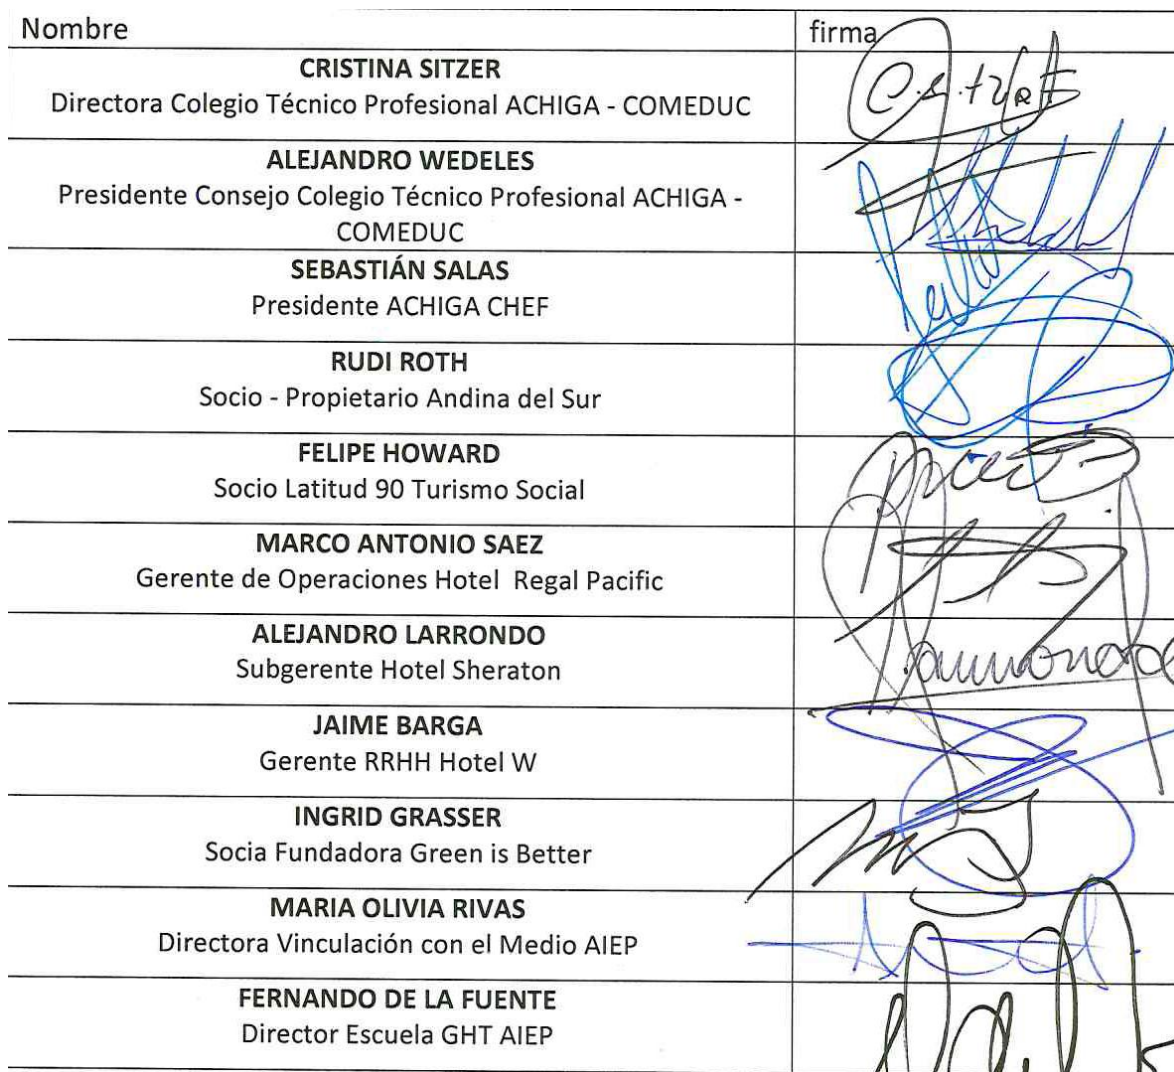 Nombre firma
CRISTINA SITZER
Directora Colegio Técnico Profesional ACHIGA - COMEDUC
ALEJANDRO WEDELES
Presidente Consejo Colegio Técnico Profesional ACHIGA -
COMEDUC
SEBASTIÁN SALAS
Presidente ACHIGA CHEF
RUDI ROTH
Socio - Propietario Andina del Sur
FELIPE HOWARD
Socio Latitud 90 Turismo Social
MARCO ANTONIO SAEZ
Gerente de Operaciones Hotel Regal Pacific
ALEJANDRO LARRONDO
Subgerente Hotel Sheraton
JAIME BARGA
Gerente RRHH Hotel W
INGRID GRASSER
Socia Fundadora Green is Better
MARIA OLIVIA RIVAS
Directora Vinculación con el Medio AIEP
FERNANDO DE LA FUENTE
Director Escuela GHT AIEP